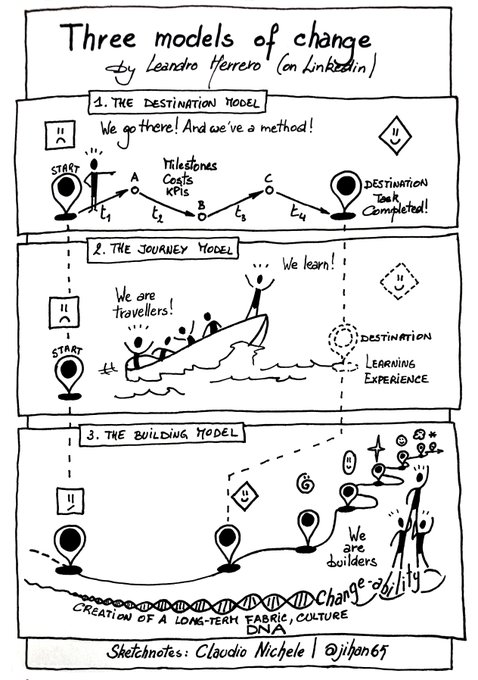 Three models of change
by Leandro Herrero (on Linkedin)
1. THE DESTINATION MODEL
We go there! And we've a method!
START
A
Milestones
Costs
KPIs
B
C
t1
t2
t3
t4
DESTINATION
Task
Completed!
2. THE JOURNEY MODEL
We are
travellers!
We learn!
START
DESTINATION
LEARNING
EXPERIENCE
3. THE BUILDING MODEL
We
are
builders
Change-ability
CREATION OF A LONG-TERM FABRIC, CULTURE
DNA
Sketchnotes: Claudio Nichele | @jihan65